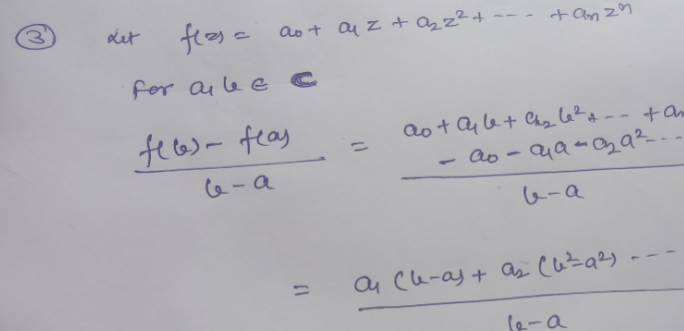 ③ Let f(z) = a₀ + a₁ z + a₂ z² + ---- + aₙ zⁿ
For a, b ∈ ℂ
f(b) - f(a) / b - a = a₀ + a₁ b + a₂ b² + --- + aₙ
- a₀ - a₁ a - a₂ a² --- / b - a
= a₁ (b-a) + a₂ (b²-a²) --- / b-a